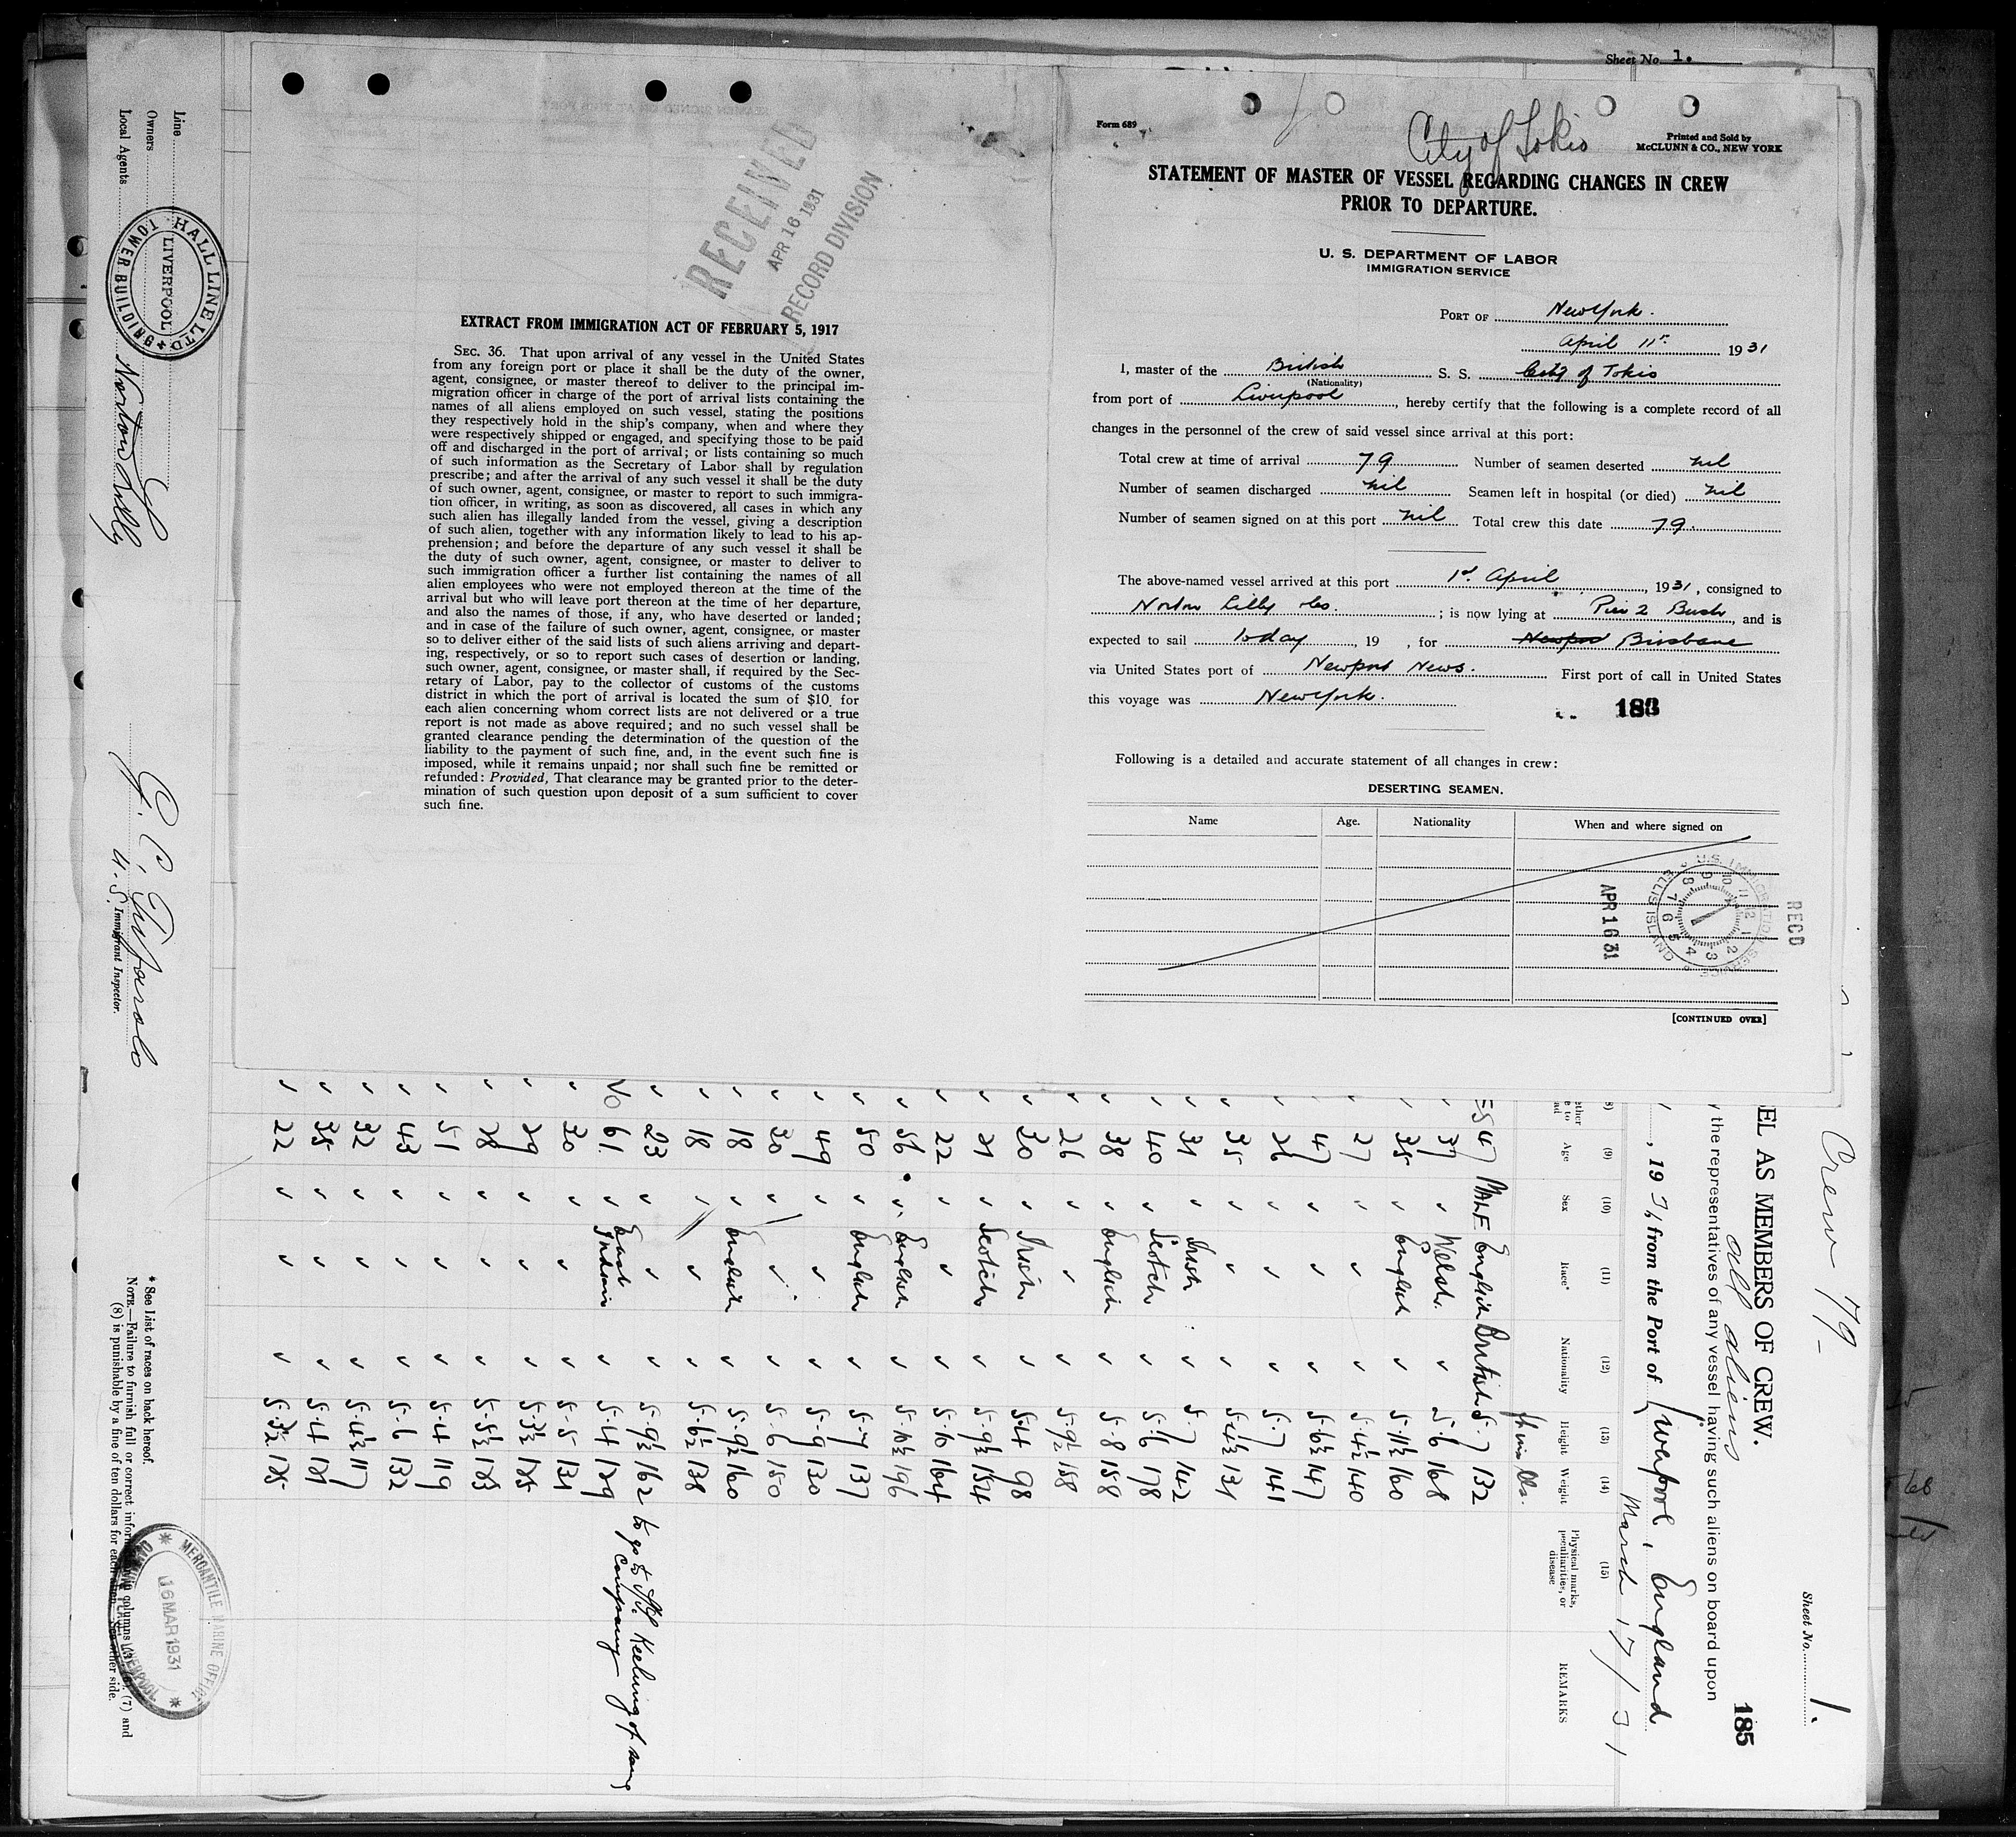 Sheet No. 1.
Form 689
City of Tokio
Printed and Sold by
McCLUNN & CO., NEW YORK
STATEMENT OF MASTER OF VESSEL REGARDING CHANGES IN CREW
PRIOR TO DEPARTURE.
U. S. DEPARTMENT OF LABOR
IMMIGRATION SERVICE
PORT OF New York.
April 11th 1931
I, master of the British S. S. City of Tokio
(Nationality)
from port of Liverpool, hereby certify that the following is a complete record of all
changes in the personnel of the crew of said vessel since arrival at this port:
Total crew at time of arrival 79 Number of seamen deserted nil
Number of seamen discharged nil Seamen left in hospital (or died) nil
Number of seamen signed on at this port nil Total crew this date 79.
The above-named vessel arrived at this port 1st April, 1931, consigned to
Norton Lilly ; is now lying at Pier 2 Bush, and is
expected to sail today, 19 , for Brisbane
via United States port of Newport News. First port of call in United States
this voyage was New York.
Following is a detailed and accurate statement of all changes in crew:
DESERTING SEAMEN.
Name Age. Nationality When and where signed on
RECD
U.S. IMMIGRATION SERVICE
ELLIS ISLAND
APR 16 31
[CONTINUED OVER]
RECEIVED
APR 16 1931
RECORD DIVISION
EXTRACT FROM IMMIGRATION ACT OF FEBRUARY 5, 1917
SEC. 36. That upon arrival of any vessel in the United States
from any foreign port or place it shall be the duty of the owner,
agent, consignee, or master thereof to deliver to the principal im-
migration officer in charge of the port of arrival lists containing the
names of all aliens employed on such vessel, stating the positions
they respectively hold in the ship's company, when and where they
were respectively shipped or engaged, and specifying those to be paid
off and discharged in the port of arrival; or lists containing so much
of such information as the Secretary of Labor shall by regulation
prescribe; and after the arrival of any such vessel it shall be the duty
of such owner, agent, consignee, or master to report to such immigra-
tion officer, in writing, as soon as discovered, all cases in which any
such alien has illegally landed from the vessel, giving a description
of such alien, together with any information likely to lead to his ap-
prehension; and before the departure of any such vessel it shall be
the duty of such owner, agent, consignee, or master to deliver to
such immigration officer a further list containing the names of all
alien employees who were not employed thereon at the time of the
arrival but who will leave port thereon at the time of her departure,
and also the names of those, if any, who have deserted or landed;
and in case of the failure of such owner, agent, consignee, or master
so to deliver either of the said lists of such aliens arriving and depart-
ing, respectively, or so to report such cases of desertion or landing,
such owner, agent, consignee, or master shall, if required by the Sec-
retary of Labor, pay to the collector of customs of the customs
district in which the port of arrival is located the sum of $10 for
each alien concerning whom correct lists are not delivered or a true
report is not made as above required; and no such vessel shall be
granted clearance pending the determination of the question of the
liability to the payment of such fine, and, in the event such fine is
imposed, while it remains unpaid; nor shall such fine be remitted or
refunded: Provided, That clearance may be granted prior to the deter-
mination of such question upon deposit of a sum sufficient to cover
such fine.
Crew 79
Sheet No. 1.
EL AS MEMBERS OF CREW.
185
all aliens
the representatives of any vessel having such aliens on board upon
, 1931, from the Port of Liverpool, England
March 17/31
(9) (10) (11) (12) (13) (14) (15)
Age Sex Race* Nationality Height Weight Physical marks, peculiarities, or disease REMARKS
47 MALE English British 5-7 132
37 Welsh 5-6 168
35 English 5-11½ 160
27 5-4½ 140
47 5-6½ 147
26 5-7 141
35 5-4½ 131
31 Irish 5 7 142
40 Scotch 5-6 178
38 English 5-8 158
26 5-9½ 158
30 Irish 5-4 98
21 Scotch 5-9½ 154
22 5-10 164
56 English 5-10½ 196
50 English 5-7 137
49 5-9 130
30 5-6 150
18 English 5-9½ 160
18 5-6½ 138
23 5-9½ 162
No 61 East Indian 5-4 129
to go to Keeling of same Company
30 5-5 131
29 5-3½ 125
28 5-5½ 123
51 5-4 119
43 5-6 132
32 5-4½ 117
35 5-4 121
22 5-3½ 125
Line
Owners
Local Agents Norton Lilly
HALL LINE LTD
LIVERPOOL
TOWER BUILDING
U.S. Immigrant Inspector.
* See List of races on back hereof.
NOTE.—Failure to furnish full or correct
(8) is punishable by a fine of ten dollars for each
MERCANTILE MARINE OFFICE
16 MAR 1931
LIVERPOOL